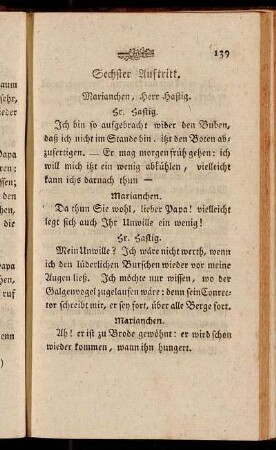 139
Sechster Auftritt.
Marianchen, Herr Hastig.
Hr. Hastig.
Ich bin so aufgebracht wider den Buben,
daß ich nicht im Stande bin, itzt den Boten ab-
zufertigen. — Er mag morgen früh gehen: ich
will mich itzt ein wenig abkühlen, vielleicht
kann ichs darnach thun —
Marianchen.
Da thun Sie wohl, lieber Papa! vielleicht
legt sich auch Ihr Unwille ein wenig!
Hr. Hastig.
Mein Unwille? Ich wäre nicht werth, wenn
ich den lüderlichen Burschen wieder vor meine
Augen ließ. Ich möchte nur wissen, wo der
Galgenvogel zugelaufen wäre: denn sein Conrec-
tor schreibt mir, er sey fort, über alle Berge fort.
Marianchen.
Ah! er ist zu Brode gewöhnt: er wird schon
wieder kommen, wann ihn hungert.